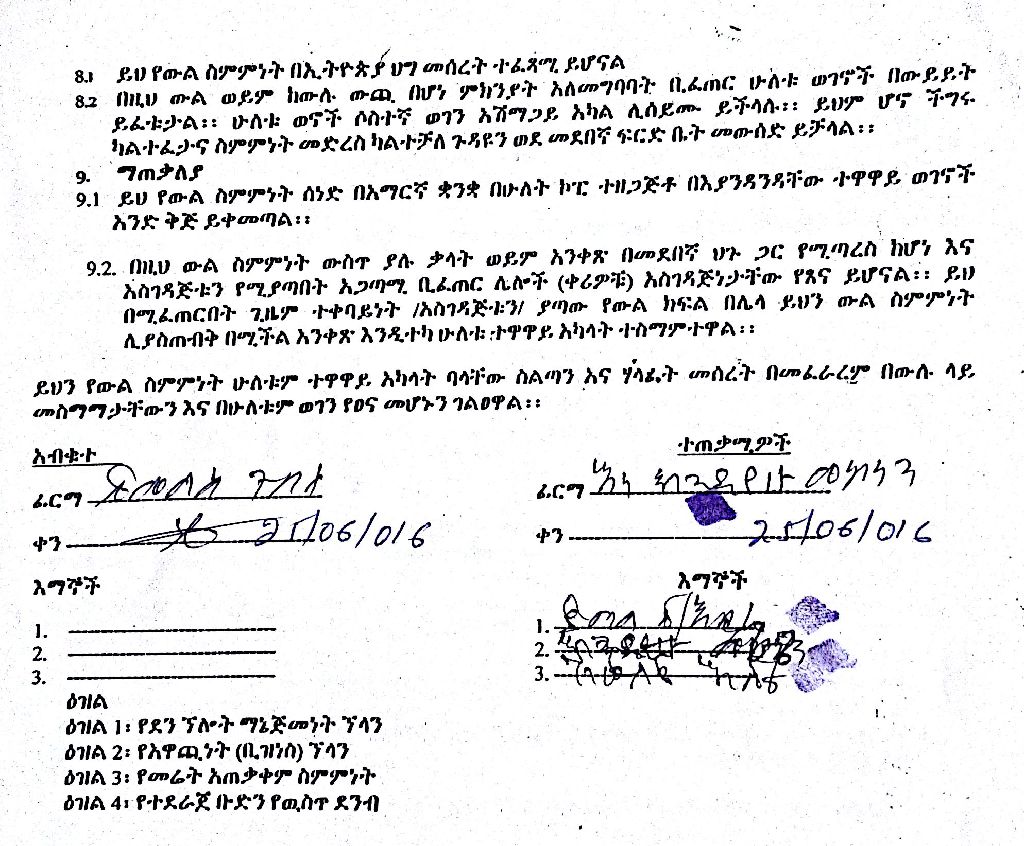 8.1 ይህ የውል ስምምነት በኢትዮጵያ ህግ መሰረት ተፈጻሚ ይሆናል
8.2 በዚህ ውል ወይም ከውሉ ውጪ በሆነ ምክንያት አለመግባባት ቢፈጠር ሁለቱ ወገኖች በውይይት
ይፈቱታል፡፡ ሁለቱ ወኖች ሶስተኛ ወገን አሸማጋይ አካል ሊሰይሙ ይችላሉ፡፡ ይህም ሆኖ ችግሩ
ካልተፈታና ስምምነት መድረስ ካልተቻለ ጉዳዩን ወደ መደበኛ ፍርድ ቤት መውሰድ ይቻላል፡፡
9. ማጠቃለያ
9.1 ይህ የውል ስምምነት ሰነድ በአማርኛ ቋንቋ በሁለት ኮፒ ተዘጋጅቶ በእያንዳንዳቸው ተዋዋይ ወገኖች
አንድ ቅጅ ይቀመጣል፡፡
9.2. በዚህ ውል ስምምነት ውስጥ ያሉ ቃላት ወይም አንቀጽ በመደበኛ ህጉ ጋር የሚጣረስ ከሆነ እና
አስገዳጅቱን የሚያጣበት አጋጣሚ ቢፈጠር ሌሎች (ቀሪዎቹ) አስገዳጅነታቸው የጸና ይሆናል፡፡ ይህ
በሚፈጠርበት ጊዜም ተቀባይነት /አስገዳጅቱን/ ያጣው የውል ክፍል በሌላ ይህን ውል ስምምነት
ሊያስጠብቅ በሚችል አንቀጽ እንዲተካ ሁለቱ ተዋዋይ አካላት ተስማምተዋል፡፡
ይህን የውል ስምምነት ሁለቱም ተዋዋይ አካላት ባላቸው ስልጣን እና ሃላፊት መሰረት በመፈራረም በውሉ ላይ
መስማማታቸውን እና በሁለቱም ወገን የፀና መሆኑን ገልፀዋል፡፡
አብቁተ
ተጠቃሚዎች
ፊርማ
ፊርማ
ቀን 25/06/016
ቀን 25/06/016
እማኞች
እማኞች
1.
1.
2.
2.
3.
3.
ዕዝል
ዕዝል 1፡ የደን ፕሎት ማኔጅመነት ፕላን
ዕዝል 2፡ የአዋጪነት (ቢዝነስ) ፕላን
ዕዝል 3፡ የመሬት አጠቃቀም ስምምነት
ዕዝል 4፡ የተደራጀ ቡድን የዉስጥ ደንብ